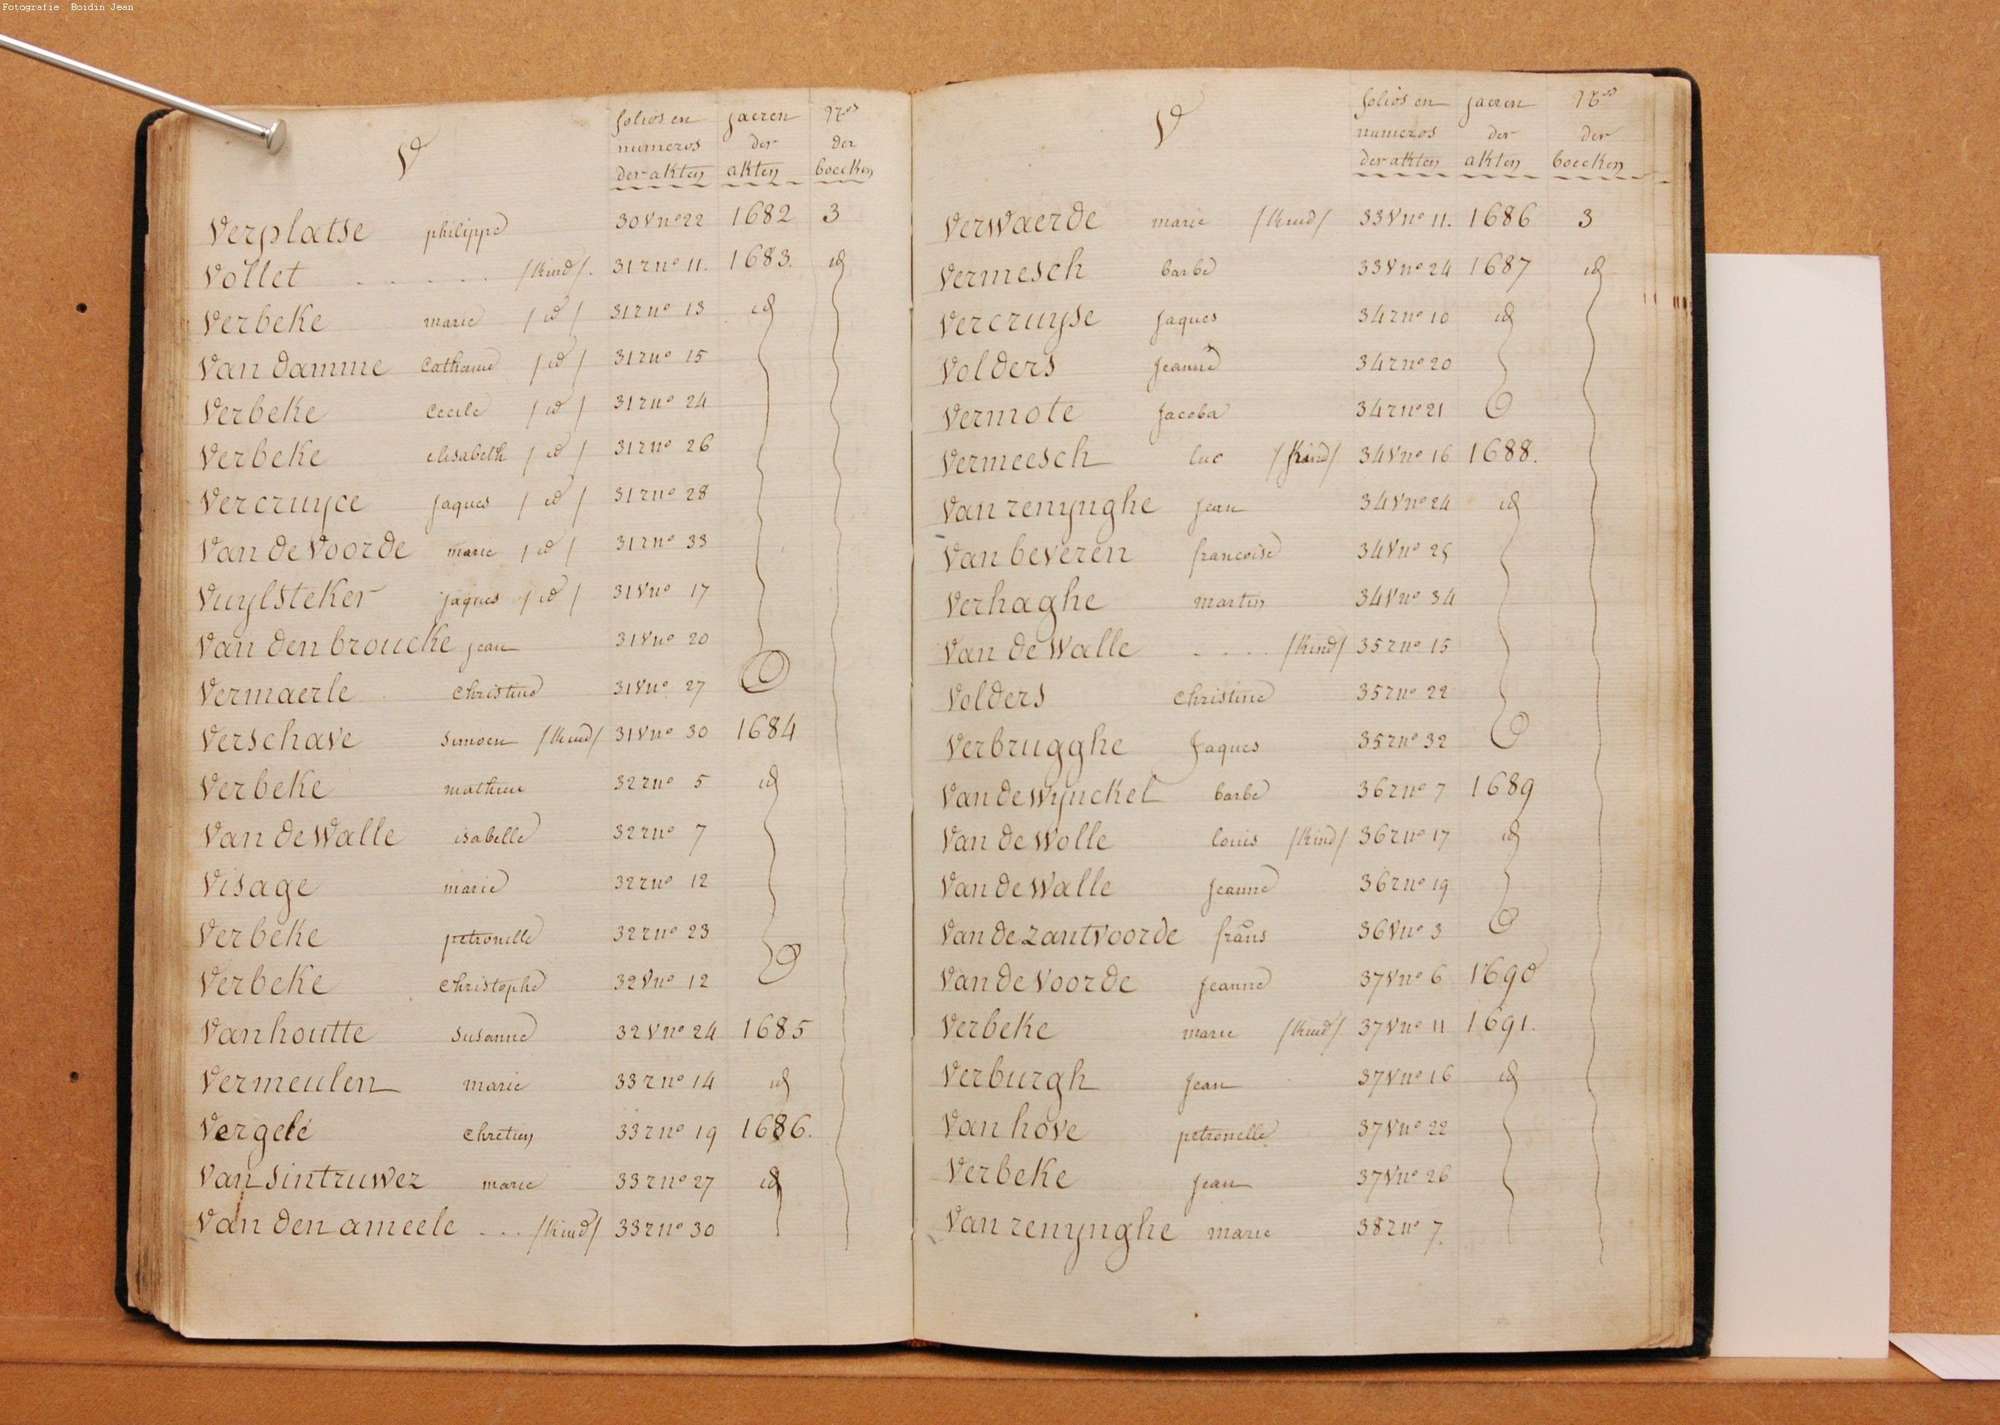 Fotografie Boidin Jean
V
folios en jaeren Nros
numeros der der
der akten akten boecken
Verplatse philippe 30 V no 22 1682 3
Vollet . . . . . . /kind/. 31 r no 11. 1683. id
Verbeke marie / id / 31 r no 13 id
Van damme Catharine / id / 31 r no 15
Verbeke Cecile / id / 31 r no 24
Verbeke elisabeth / id / 31 r no 26
Vercruyce jaques / id / 31 r no 28
Van de Voorde marie / id / 31 r no 33
Vuylsteker jaques / id / 31 V no 17
Van den broucke jean 31 V no 20
Vermaerle Christine 31 V no 27
Verschave Simoen /kind/ 31 V no 30 1684
Verbeke mathieu 32 r no 5 id
Van de Walle isabelle 32 r no 7
Visage marie 32 r no 12
Verbeke petronelle 32 r no 23
Verbeke Christophe 32 V no 12
Van houtte Susanne 32 V no 24 1685
Vermeulen marie 33 r no 14 id
Vergele Chretien 33 r no 19 1686.
Van sintruwez marie 33 r no 27 id
Van den ameele . . . /kind/ 33 r no 30
V
folios en jaeren Nros
numeros der der
der akten akten boecken
Verwaerde marie /kind/ 33 V no 11. 1686 3
Vermesch barbe 33 V no 24 1687 id
Vercruyse jaques 34 r no 10 id
Volders jeanne 34 r no 20
Vermote jacoba 34 r no 21
Vermeesch luc /kind/ 34 V no 16 1688.
Van renynghe jean 34 V no 24 id
Van beveren francoise 34 V no 25
Verhaghe martin 34 V no 34
Van de Walle . . . . /kind/ 35 r no 15
Volders Christine 35 r no 22
Verbrugghe jaques 35 r no 32
Van de wynckel barbe 36 r no 7 1689
Van de Wolle louis /kind/ 36 r no 17 id
Van de Walle jeanne 36 r no 19
Van de zantvoorde frans 36 V no 3
Van de Voorde jeanne 37 V no 6 1690
Verbeke marie /kind/ 37 V no 11 1691.
Verburgh jean 37 V no 16 id
Van hove petronelle 37 V no 22
Verbeke jean 37 V no 26
Van renynghe marie 38 r no 7.